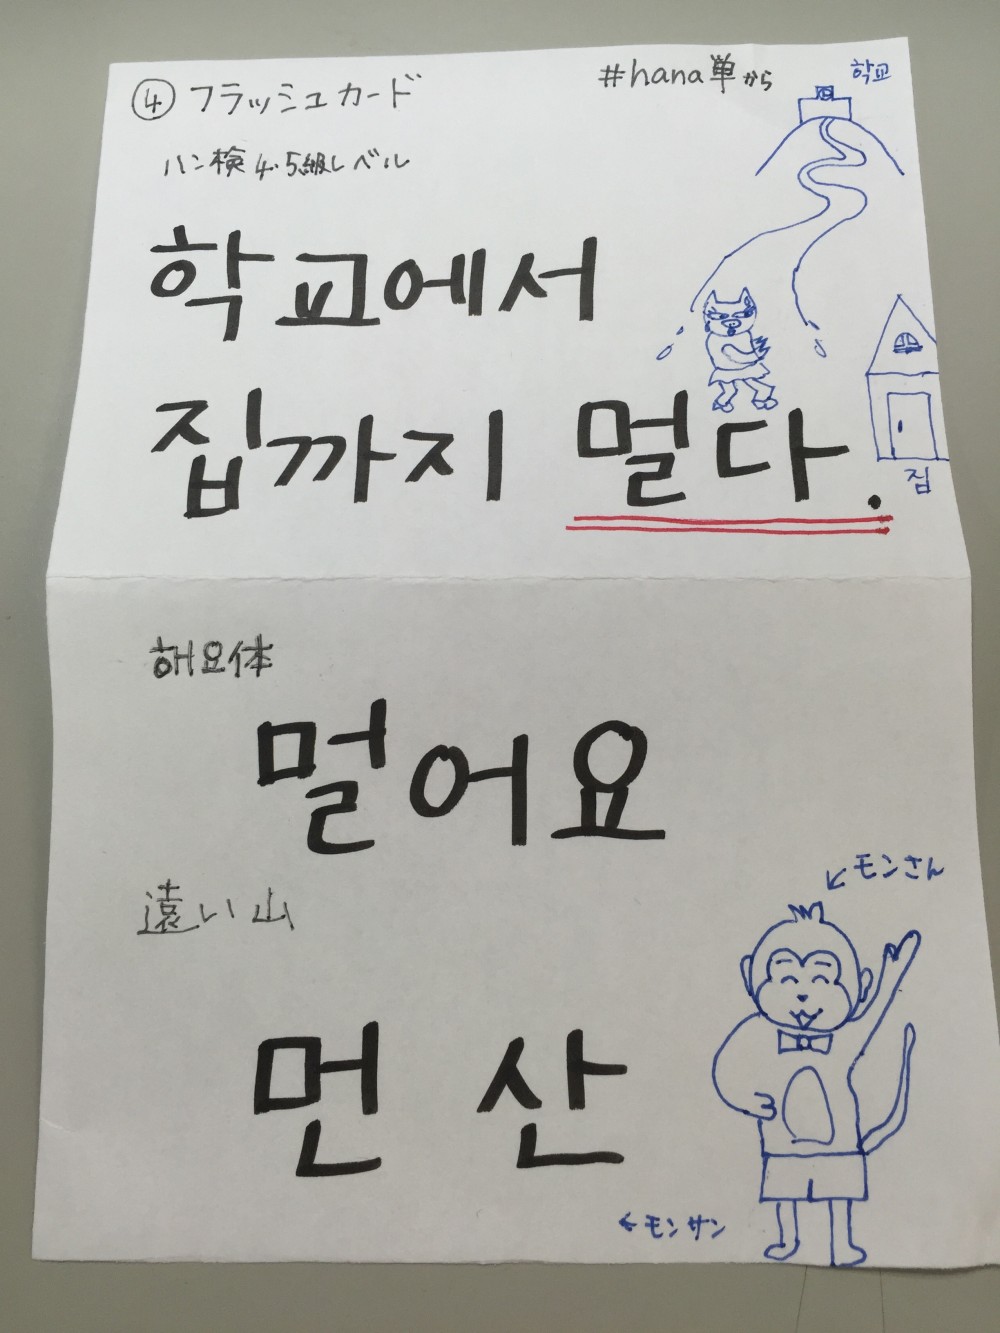 ④ フラッシュカード
#hana単から
ハン検4・5級レベル
학교
학교에서
집까지 멀다.
집
해요体
멀어요
遠い山
↙モンさん
먼 산
←モンサン